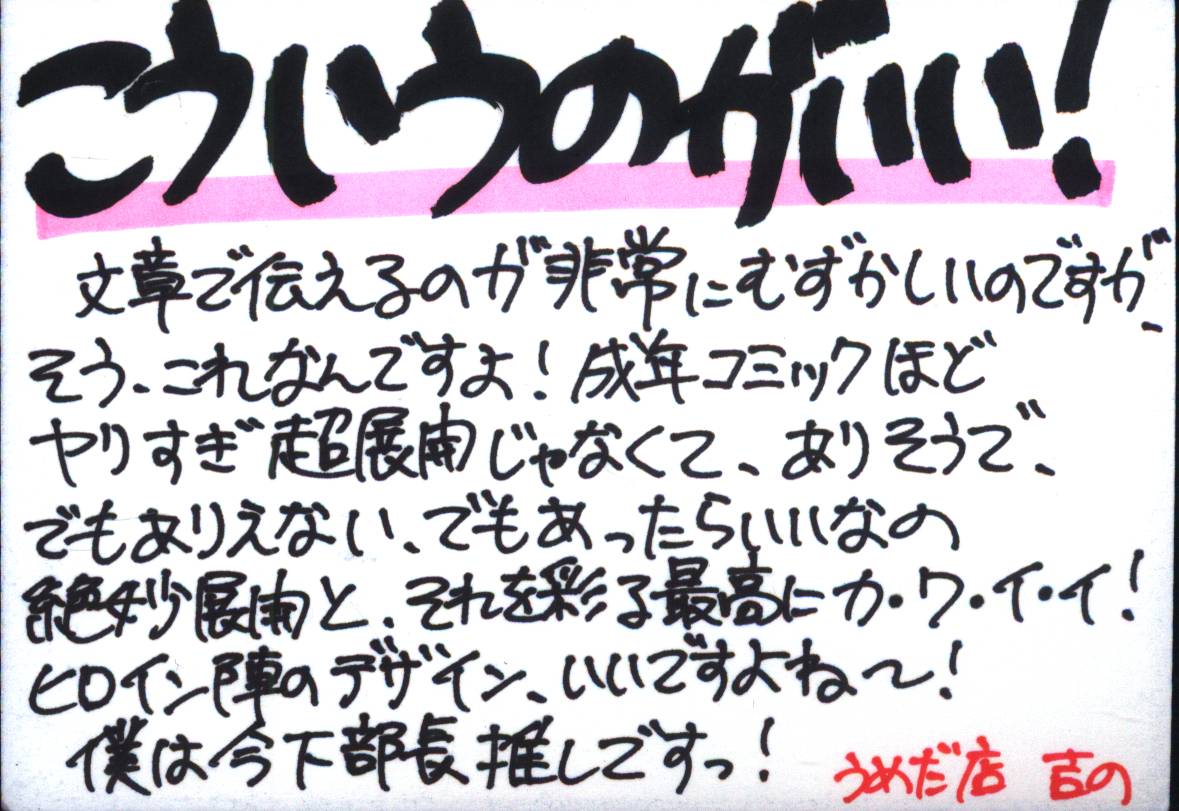 こういうのがいい!
文章で伝えるのが非常にむずかしいのですが、
そう、これなんですよ!成年コミックほど
ヤりすぎ超展開じゃなくて、ありそうで、
でもありえない、でもあったらいいなの
絶妙展開と、それを彩る最高にカ・ワ・イ・イ!
ヒロイン陣のデザイン、いいですよね〜!
僕は今下部長推しですっ!
うめだ店 吉の